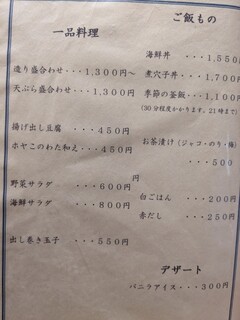 一品料理
造り盛合わせ・・・1,300円~
天ぷら盛合わせ・・・1,300円
揚げ出し豆腐 ・・・450円
ホヤこのわた和え・・・450円
野菜サラダ ・・・600円
海鮮サラダ ・・・800円
出し巻き玉子 ・・・550円
ご飯もの
海鮮丼 ・・・1,550
煮穴子丼 ・・・1,700
季節の釜飯・・・1,100
(30分程度かかります。21時まで)
お茶漬け(ジャコ・のり・梅)
・・・500
円
白ごはん ・・・200円
赤だし ・・・250円
デザート
バニラアイス・・・300円